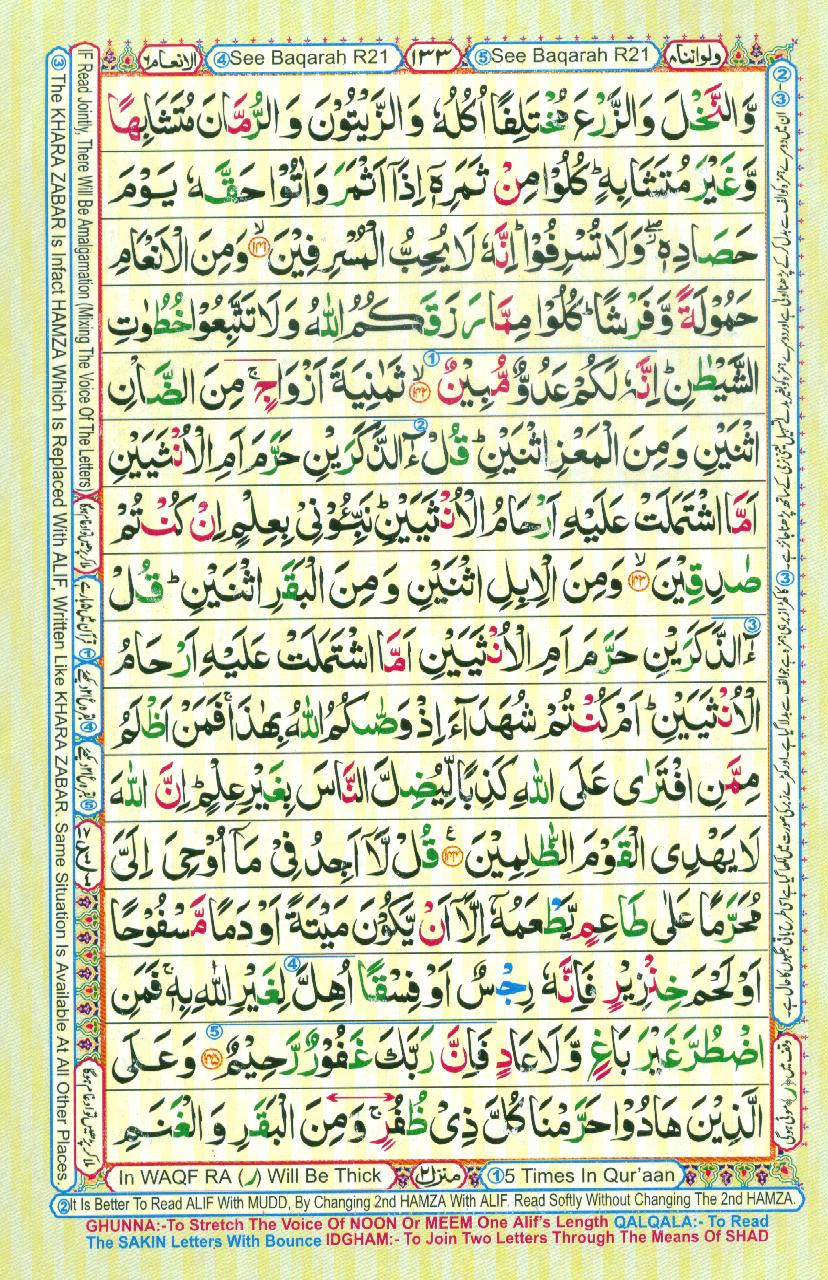 الانعام ٦
④ See Baqarah R21
١٣٣
⑤ See Baqarah R21
ولواننا ٨
وَّالنَّخْلَ وَالزَّرْعَ مُخْتَلِفًا اُكُلُهٗ وَالزَّيْتُوْنَ وَالرُّمَّانَ مُتَشَابِهًا
وَّغَيْرَ مُتَشَابِهٍ ؕ كُلُوْا مِنْ ثَمَرِهٖۤ اِذَاۤ اَثْمَرَ وَاٰتُوْا حَقَّهٗ يَوْمَ
حَصَادِهٖ ۖؗ وَلَا تُسْرِفُوْا ؕ اِنَّهٗ لَا يُحِبُّ الْمُسْرِفِيْنَ ۙ﴿۱۴۱﴾ وَمِنَ الْاَنْعَامِ
حَمُوْلَةً وَّفَرْشًا ؕ كُلُوْا مِمَّا رَزَقَكُمُ اللّٰهُ وَلَا تَتَّبِعُوْا خُطُوٰتِ
الشَّيْطٰنِ ؕ اِنَّهٗ لَكُمْ عَدُوٌّ مُّبِيْنٌ ۙ﴿۱۴۲﴾ ① ثَمٰنِيَةَ اَزْوَاجٍ ۚ مِنَ الضَّاْنِ
اثْنَيْنِ وَمِنَ الْمَعْزِ اثْنَيْنِ ؕ قُلْ ② ءٰٓالذَّكَرَيْنِ حَرَّمَ اَمِ الْاُنْثَيَيْنِ
اَمَّا اشْتَمَلَتْ عَلَيْهِ اَرْحَامُ الْاُنْثَيَيْنِ ؕ نَبِّـُٔوْنِيْ بِعِلْمٍ اِنْ كُنْتُمْ
صٰدِقِيْنَ ۙ﴿۱۴۳﴾ وَمِنَ الْاِبِلِ اثْنَيْنِ وَمِنَ الْبَقَرِ اثْنَيْنِ ؕ قُلْ
③ ءٰٓالذَّكَرَيْنِ حَرَّمَ اَمِ الْاُنْثَيَيْنِ اَمَّا اشْتَمَلَتْ عَلَيْهِ اَرْحَامُ
الْاُنْثَيَيْنِ ؕ اَمْ كُنْتُمْ شُهَدَآءَ اِذْ وَصّٰىكُمُ اللّٰهُ بِهٰذَا ۚ فَمَنْ اَظْلَمُ
مِمَّنِ افْتَرٰى عَلَى اللّٰهِ كَذِبًا لِّيُضِلَّ النَّاسَ بِغَيْرِ عِلْمٍ ؕ اِنَّ اللّٰهَ
لَا يَهْدِى الْقَوْمَ الظّٰلِمِيْنَ ﴿۱۴۴﴾ ع قُلْ لَّاۤ اَجِدُ فِيْ مَاۤ اُوْحِيَ اِلَيَّ
مُحَرَّمًا عَلٰى طَاعِمٍ يَّطْعَمُهٗۤ اِلَّاۤ اَنْ يَّكُوْنَ مَيْتَةً اَوْ دَمًا مَّسْفُوْحًا
اَوْ لَحْمَ خِنْزِيْرٍ فَاِنَّهٗ رِجْسٌ اَوْ فِسْقًا ④ اُهِلَّ لِغَيْرِ اللّٰهِ بِهٖ ۚ فَمَنِ
اضْطُرَّ غَيْرَ بَاغٍ وَّلَا عَادٍ فَاِنَّ رَبَّكَ غَفُوْرٌ رَّحِيْمٌ ﴿۱۴۵﴾ ⑤ وَعَلَى
الَّذِيْنَ هَادُوْا حَرَّمْنَا كُلَّ ذِيْ ظُفُرٍ ۚ وَمِنَ الْبَقَرِ وَالْغَنَمِ
IF Read Jointly, There Will Be Amalgamation (Mixing The Voice Of The Letters)
③ The KHARA ZABAR Is Infact HAMZA Which Is Replaced With ALIF, Written Like KHARA ZABAR. Same Situation Is Available At All Other Places.
In WAQF RA (ر) Will Be Thick
منزل ٢
① 5 Times In Qur'aan
② It Is Better To Read ALIF With MUDD, By Changing 2nd HAMZA With ALIF. Read Softly Without Changing The 2nd HAMZA.
GHUNNA:-To Stretch The Voice Of NOON Or MEEM One Alif's Length QALQALA:- To Read
The SAKIN Letters With Bounce IDGHAM:- To Join Two Letters Through The Means Of SHAD